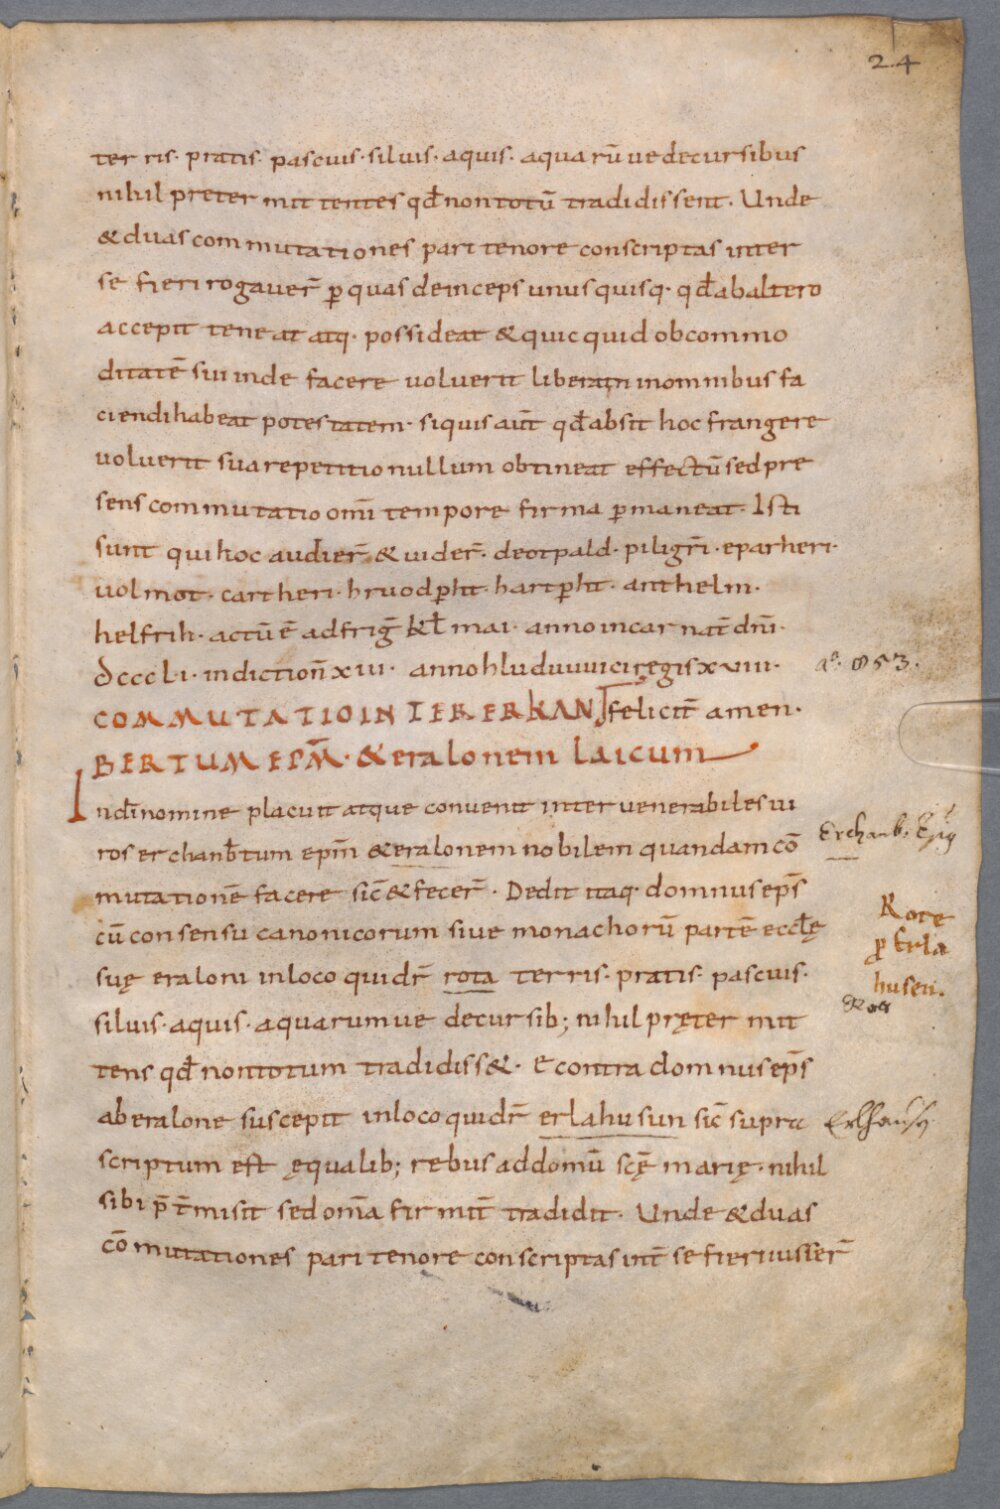 24
terris. pratis. pascuis. siluis. aquis. aquarū ue decursibus
nihil pretermittentes qđ non totū tradidissent. Unde
& duas commutationes pari tenore conscriptas inter
se fieri rogauer̄ ꝑ quas deinceps unusquisq. qđ ab altero
accepit teneat atq. possideat & quicquid ob commo
ditatē sui inde facere uoluerit liberam in omnibus fa
ciendi habeat potestatem. siquis aūt qđ absit hoc frangere
uoluerit sua repetitio nullum obtineat effectū sed pre
sens commutatio omī tempore firma ꝑmaneat. Isti
sunt qui hoc audier̄ & uider̄. deotpald. piligrī. eparheri.
uolmot. cartheri. hruodꝑht. hartꝑht. anthelm.
helfrih. actū ē ad frig̅ kł mai. anno incarnat̄ dn̄i.
dcccli. indiction̄ xiii. anno hludуuuici regis xviii.
aº. 853.
COMMUTATIO INTER ERKAN felicit̄ amen.
BERTUM EPM̄. & eralonem laicum
In dī nomine placuit atque conuenit inter uenerabiles ui
ros erchanb̄tum epm̄ & eralonem nobilem quandam cō
Erchanb. Epīg
mutationē facere sic̄ & fecer̄. Dedit itaq. domnus ep̄s
cū consensu canonicorum siue monachorū partē eccłę
Rotę
ꝓ Erla
husen.
suę eraloni in loco qui dr̄ rota terris. pratis. pascuis.
Rota
siluis. aquis. aquarumue decursib; nihil pręter mit
tens qđ non totum tradidiss&. Econtra domnus ep̄s
ab eralone suscepit in loco qui dr̄ erlahusun sic̄ supra
Erlhausn
scriptum est ęqualib; rebus ad domū scę̄ marię. nihil
sibi p̄t̄misit sed om̄a firmit̄ tradidit. Unde & duas
cōmutationes pari tenore conscriptas int̄ se fieri iusser̄